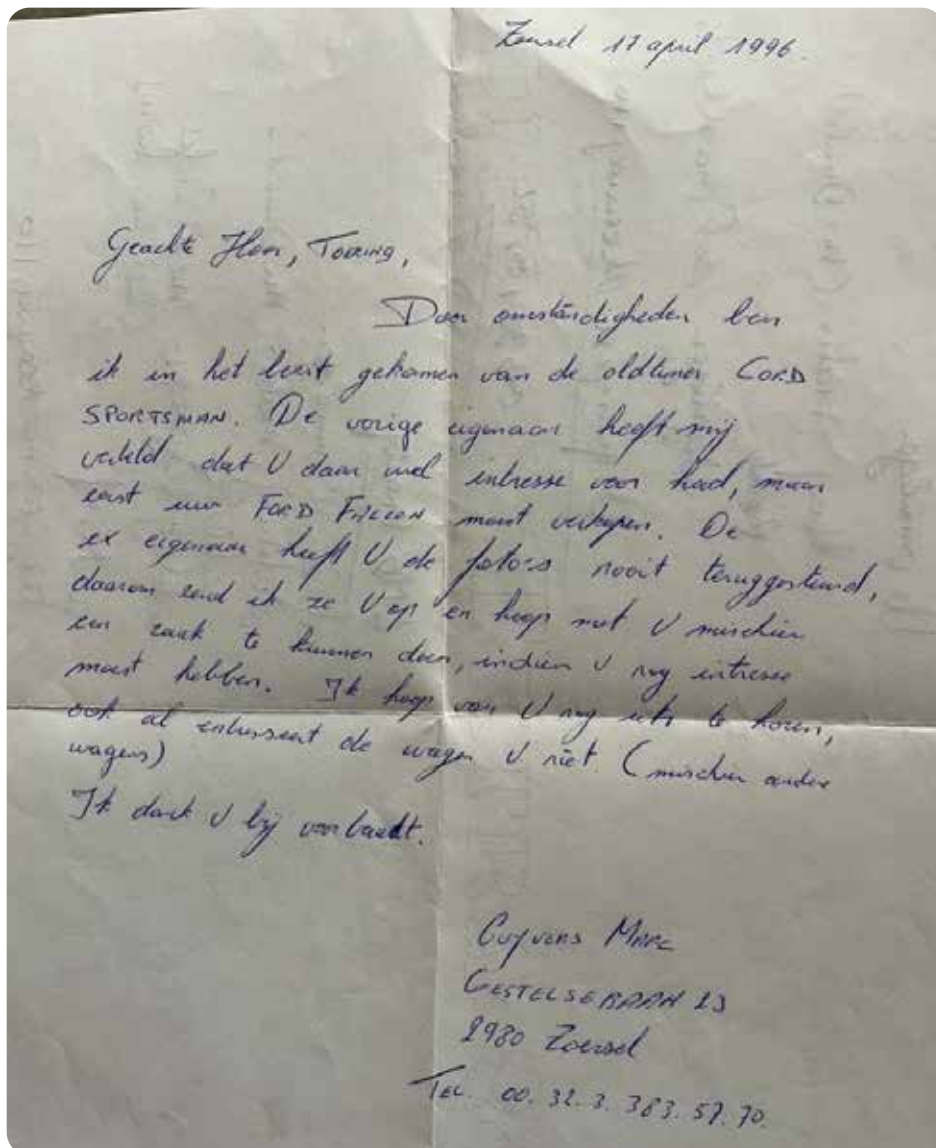 Zoersel 17 april 1996.
Geachte Heer, TOERING,
Door omstandigheden ben
ik in het bezit gekomen van de oldtimer CORD
SPORTSMAN. De vorige eigenaar heeft mij
verteld dat U daar wel intresse voor had, maar
eerst uw FORD moest verkopen. De
ex eigenaar heeft U de foto's nooit teruggestuurd,
daarom zend ik ze U op en hoop met U misschien
een zaak te kunnen doen, indien U nog intresse
moest hebben. Ik hoop van U nog iets te horen,
ook al intresseert de wagen U niet. (misschien andere
wagens)
Ik dank U bij voorbaat.
Cuyvers MARC
GESTELSEBAAN 23
2980 Zoersel
TEL. 00.32.3.383.57.70.